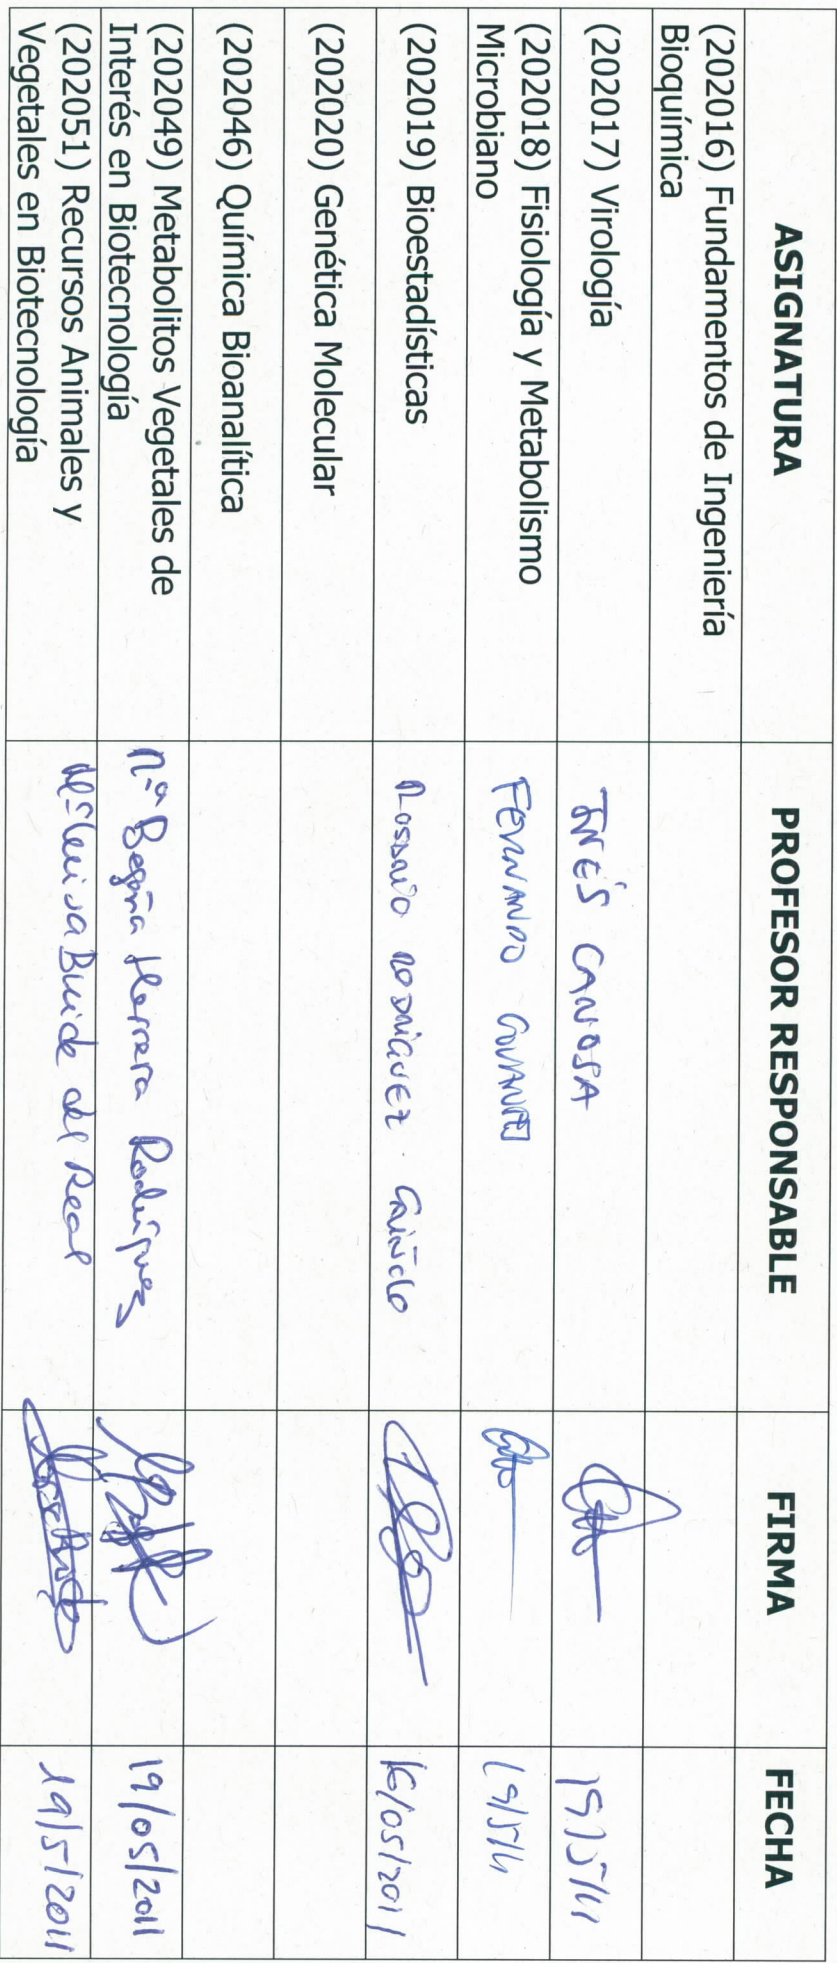 ASIGNATURA PROFESOR RESPONSABLE FIRMA FECHA
(202016) Fundamentos de Ingeniería
Bioquímica
(202017) Virología INÉS CANOSA 19/5/11
(202018) Fisiología y Metabolismo
Microbiano FERNANDO GOVANTES 19/5/11
(202019) Bioestadísticas Rosario RODRIGUEZ GRIÑOLO 16/05/2011
(202020) Genética Molecular
(202046) Química Bioanalítica
(202049) Metabolitos Vegetales de
Interés en Biotecnología Mª Begoña Herrera Rodríguez 19/05/2011
(202051) Recursos Animales y
Vegetales en Biotecnología Mª Luisa Buide del Real 19/5/2011